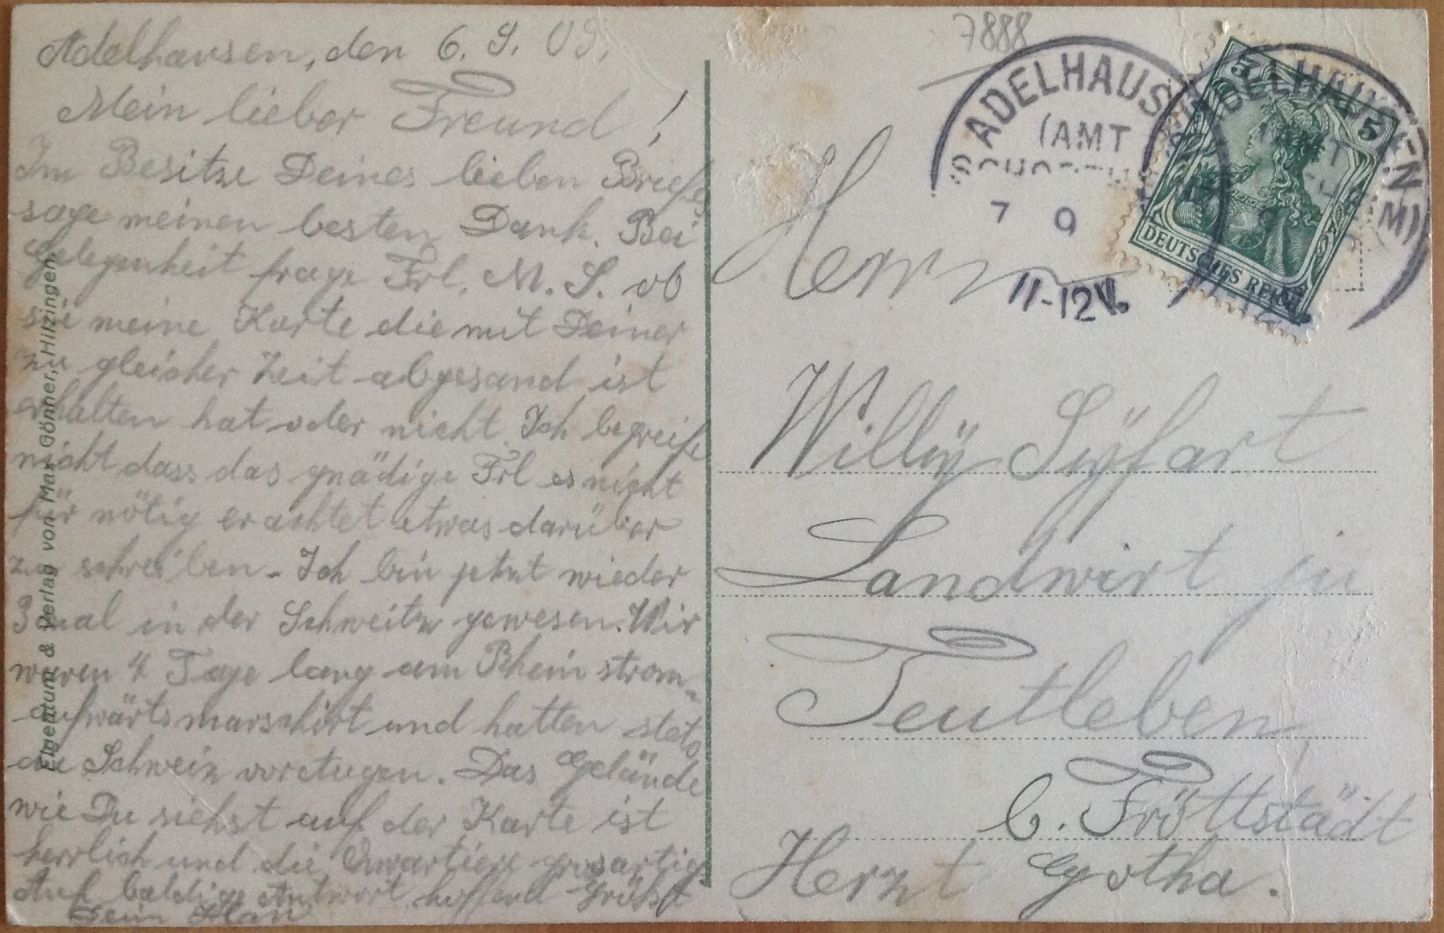 Adelhausen, den 6. 9. 09.
Mein lieber Freund!
Im Besitze Deines lieben Briefes
sage meinen besten Dank. Bei
Gelegenheit frage Frl. M. S. ob
sie meine Karte die mit Deiner
zu gleicher Zeit abgesand ist
erhalten hat oder nicht. Ich begreife
nicht dass das gnädige Frl es nicht
für nötig erachtet etwas darüber
zu schreiben. Ich bin jetzt wieder
3 mal in der Schweitz gewesen. Wir
waren 4 Tage lang am Rhein strom-
aufwärts marschirt und hatten stets
die Schweiz vor Augen. Das Gelände
wie Du siehst auf der Karte ist
herrlich und die Quartiere grosartig
Auf baldige Antwort hoffend Grüßt
Dein
Eigentum & Verlag von Max Gönner, Hilzingen.
7888
ADELHAUS
(AMT
7 9
11-12V.
ADELHAUSEN
AMT
5
5
DEUTSCHES REICH
Herrn
Willÿ Sÿfart
Landwirt zu
Teutleben
b. Fröttstädt
Herzt Gotha.